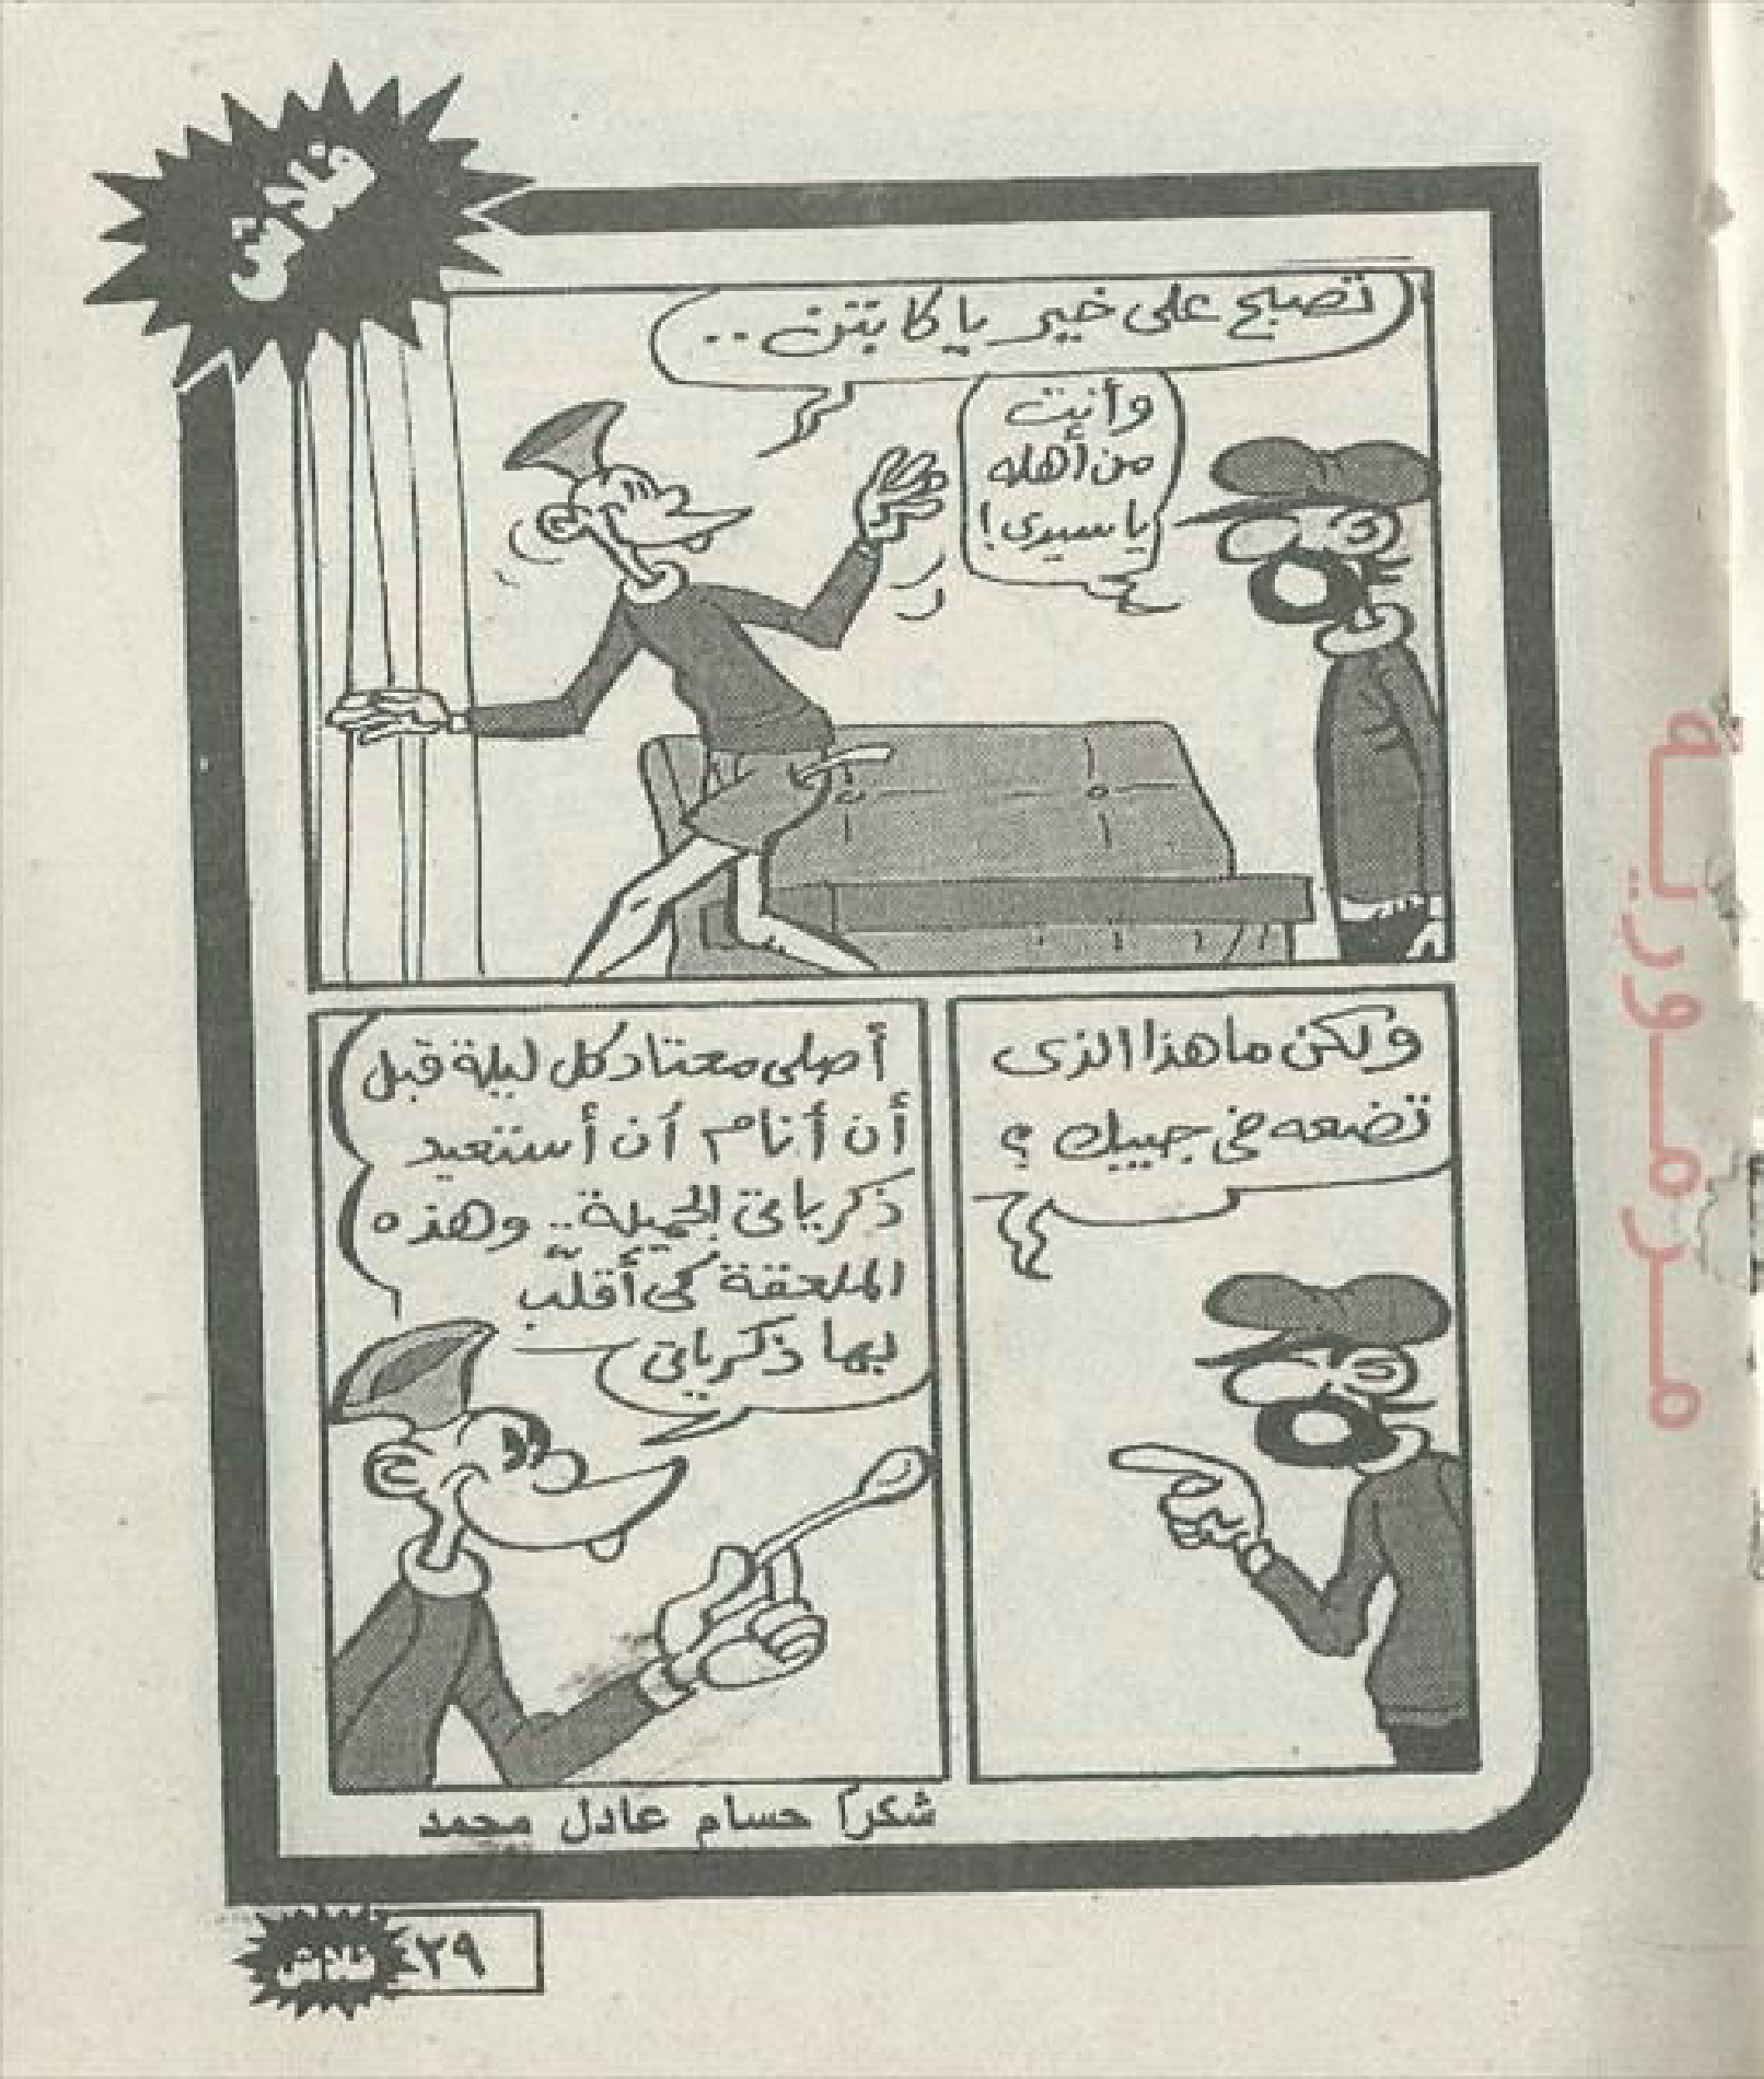 فلاش
تصبح على خير يا كابتن ..
وأنت
من أهله
يا سيدى !
ولكن ما هذا الذى
تضعه فى جيبك ؟
أصلى معتاد كل ليلة قبل
أن أنام أن أستعيد
ذكرياتى الجميلة .. وهذه
الملعقة كى أقلّب
بها ذكرياتى
شكراً حسام عادل محمد
٢٩
فلاش
مرمورية